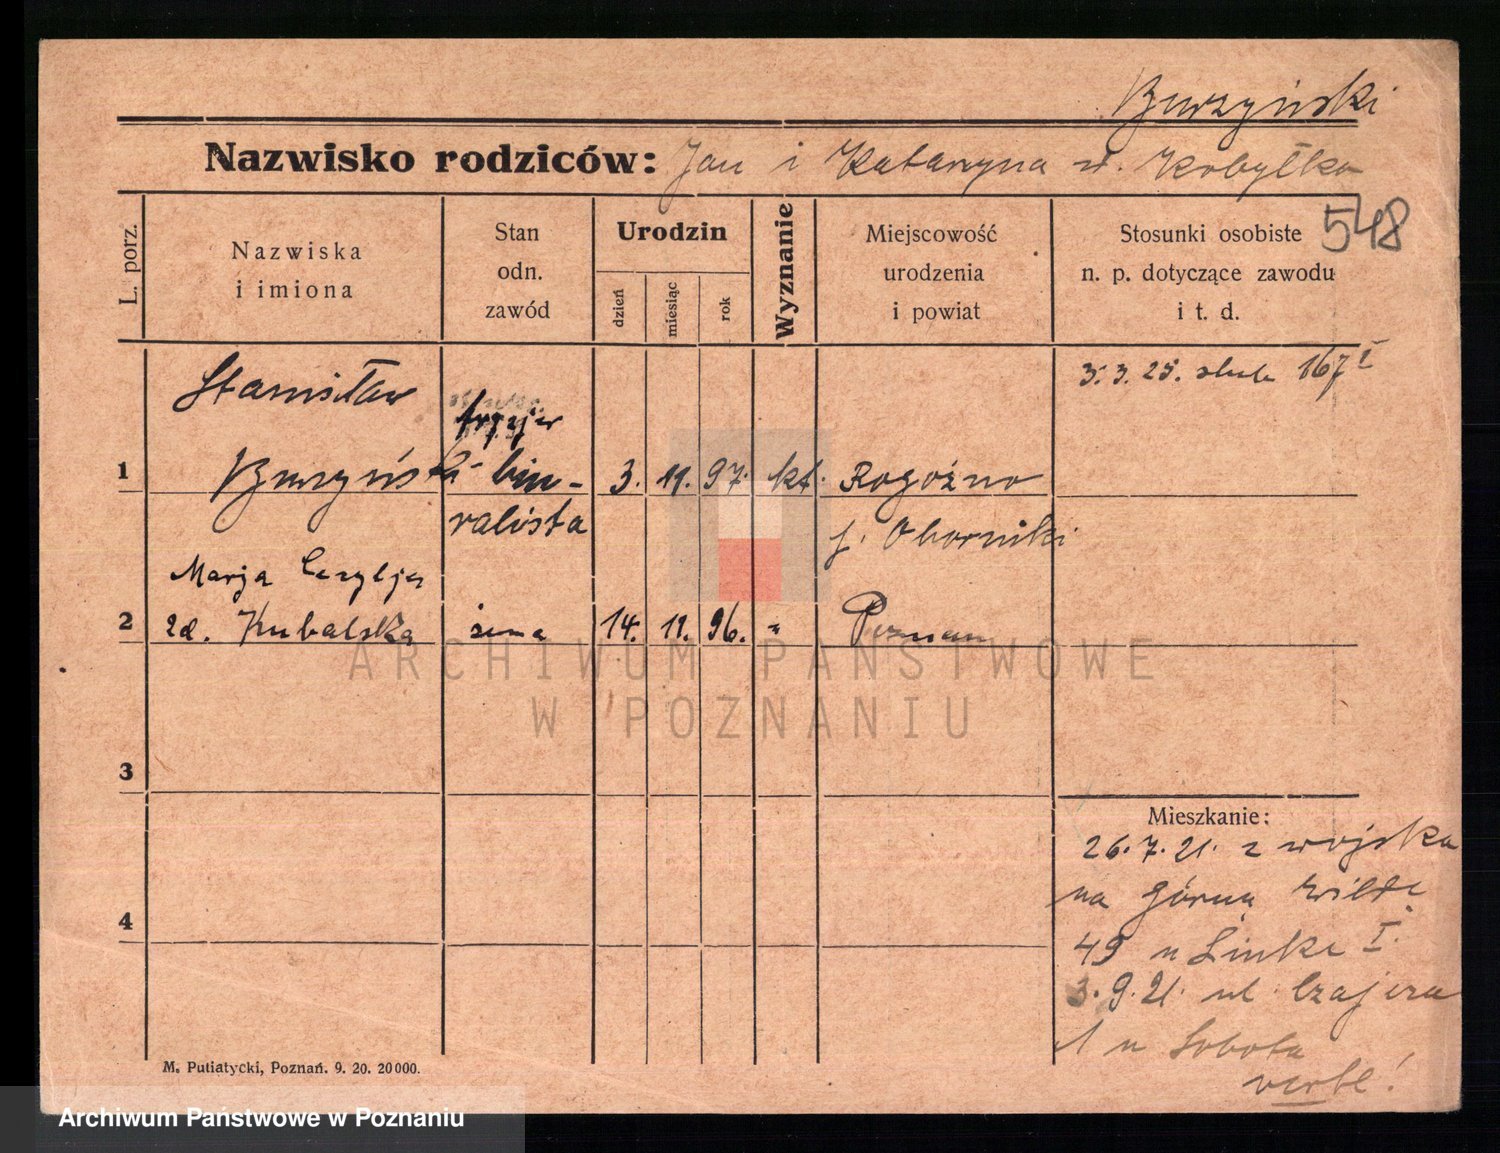 Burzyński
Nazwisko rodziców: Jan i Katarzyna z d. Kobyłka
548
L. porz.
Nazwiska
i imiona
Stan
odn.
zawód
Urodzin
dzień
miesiąc
rok
Wyznanie
Miejscowość
urodzenia
i powiat
Stosunki osobiste
n. p. dotyczące zawodu
i t. d.
3. 3. 25. ślub 167 I
Stanisław
fryzjer
1 Burzyński biu- 3. 11. 97. kt. Rogoźno
ralista
p. Oborniki
Marja Cecylja
2 zd. Kubalska żona 14. 11. 96. " Poznań
ARCHIWUM PAŃSTWOWE
W POZNANIU
3
Mieszkanie:
26. 7. 21. z wojska
na Górną Wildę
4
49 u Linke I.
3. 9. 21. ul. Czajcza
1 u Sobota
verte!
M. Putiatycki, Poznań. 9. 20. 20000.
Archiwum Państwowe w Poznaniu